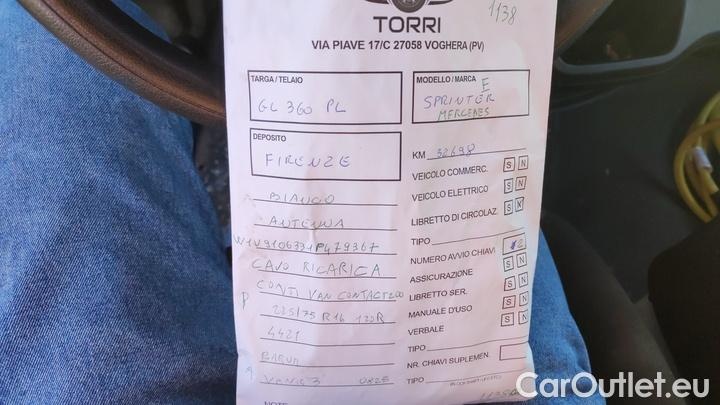 1138
TORRI
VIA PIAVE 17/C 27058 VOGHERA (PV)
TARGA / TELAIO
GL 360 PL
MODELLO / MARCA
E
SPRINTER
MERCEDES
DEPOSITO
FIRENZE
KM 32698
VEICOLO COMMERC. S N
BIANCO
VEICOLO ELETTRICO S N
ANTENNA
LIBRETTO DI CIRCOLAZ. S N
W1V9106331P479367
TIPO
CAVO RICARICA
NUMERO AVVIO CHIAVI 2
CONTI VAN CONTACT 200
ASSICURAZIONE S N
LIBRETTO SER. S N
P 225/75 R16 120R
MANUALE D'USO S N
4421
VERBALE S N
TIPO
BARUM
NR. CHIAVI SUPLEMEN.
A VANIS 3
TIPO
NOTE
CarOutlet.eu